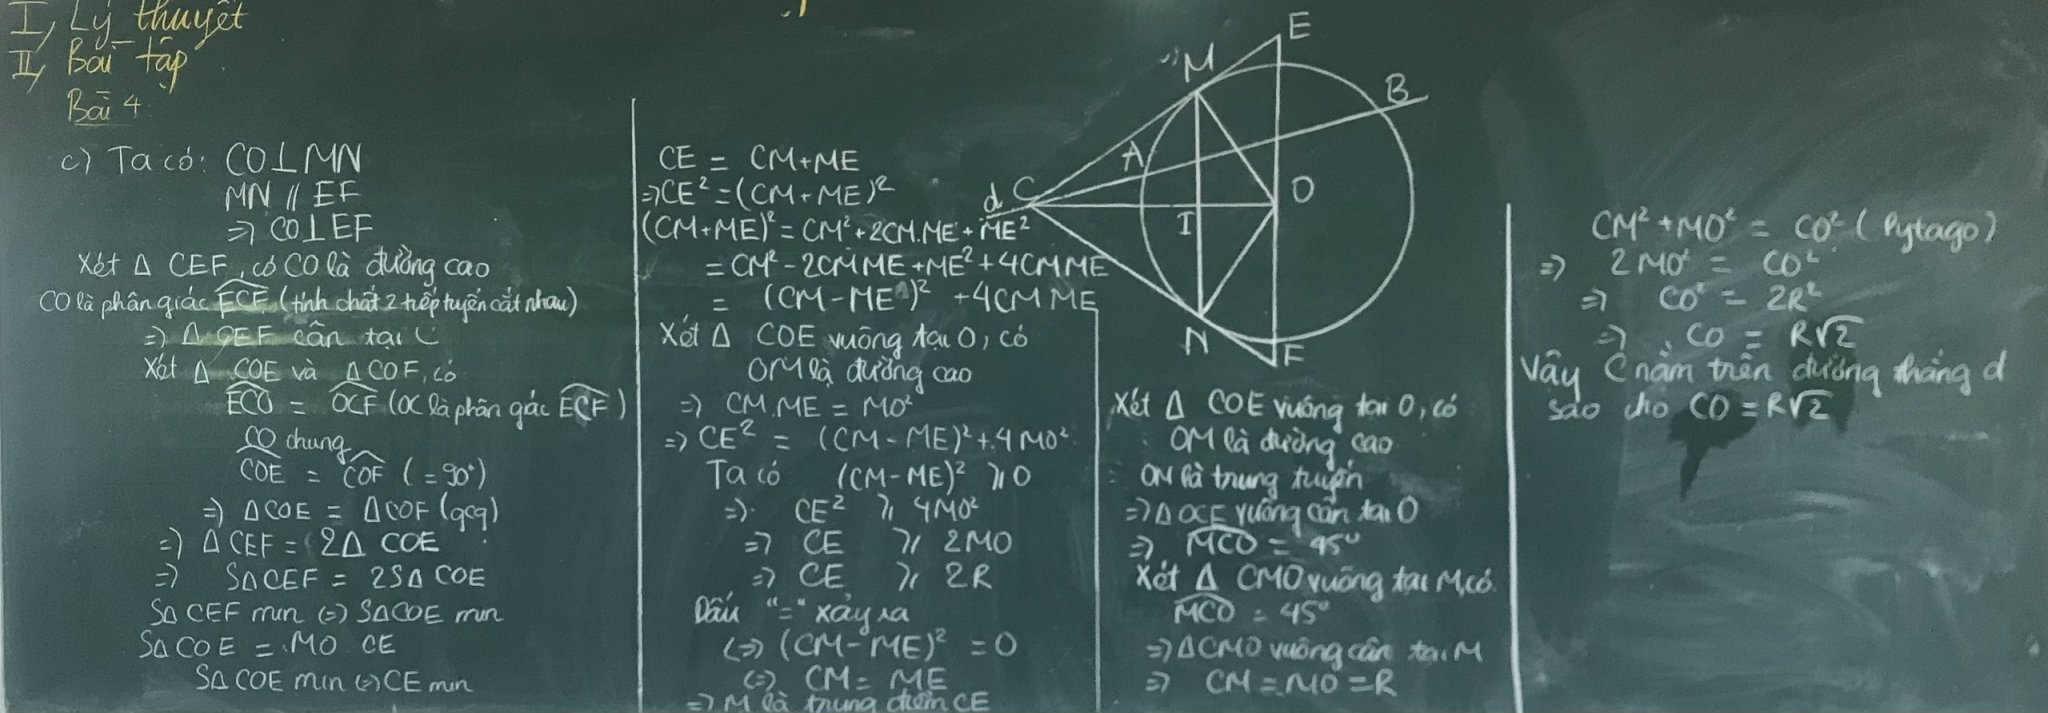 I, Lý thuyết
II, Bài tập
Bài 4.
c) Ta có: CO⊥MN
MN // EF
=> CO⊥EF
Xét Δ CEF, có CO là đường cao
CO là phân giác \widehat{ECF} (tính chất 2 tiếp tuyến cắt nhau)
=> Δ CEF cân tại C
Xét Δ COE và ΔCOF, có
\widehat{ECO} = \widehat{OCF} (OC là phân gác \widehat{ECF})
CO chung
\widehat{COE} = \widehat{COF} (=90°)
=> ΔCOE = ΔCOF (gcg)
=) ΔCEF = 2Δ COE
=) SΔCEF = 2SΔ COE
SΔ CEF min (=) SΔCOE min
SΔ COE = MO CE
SΔ COE min (=) CE min
CE = CM+ME
=> CE² = (CM+ME)²
(CM+ME)² = CM² + 2CM.ME + ME²
= CM² - 2CM ME + ME² + 4CM ME
= (CM-ME)² + 4CM ME
Xét Δ COE vuông tại O, có
OM là đường cao
=> CM.ME = MO²
=> CE² = (CM-ME)² + 4MO²
Ta có (CM-ME)² ⩾ 0
=> CE² ⩾ 4MO²
=> CE ⩾ 2MO
=> CE ⩾ 2R
Dấu "=" xảy ra
(=) (CM-ME)² = 0
(=) CM = ME
=> M là trung điểm CE
E
M
B
A
d C
I
O
N
F
Xét Δ COE vuông tại O, có
OM là đường cao
OM là trung tuyến
=> ΔOCE vuông cân tại O
=> \widehat{MCO} = 45°
Xét Δ CMO vuông tại M, có
\widehat{MCO} = 45°
=> ΔCMO vuông cân tại M
=> CM = MO = R
CM² + MO² = CO² (Pytago)
=> 2MO² = CO²
=> CO² = 2R²
=> CO = R√2
Vậy C nằm trên đường thẳng d
sao cho CO = R√2